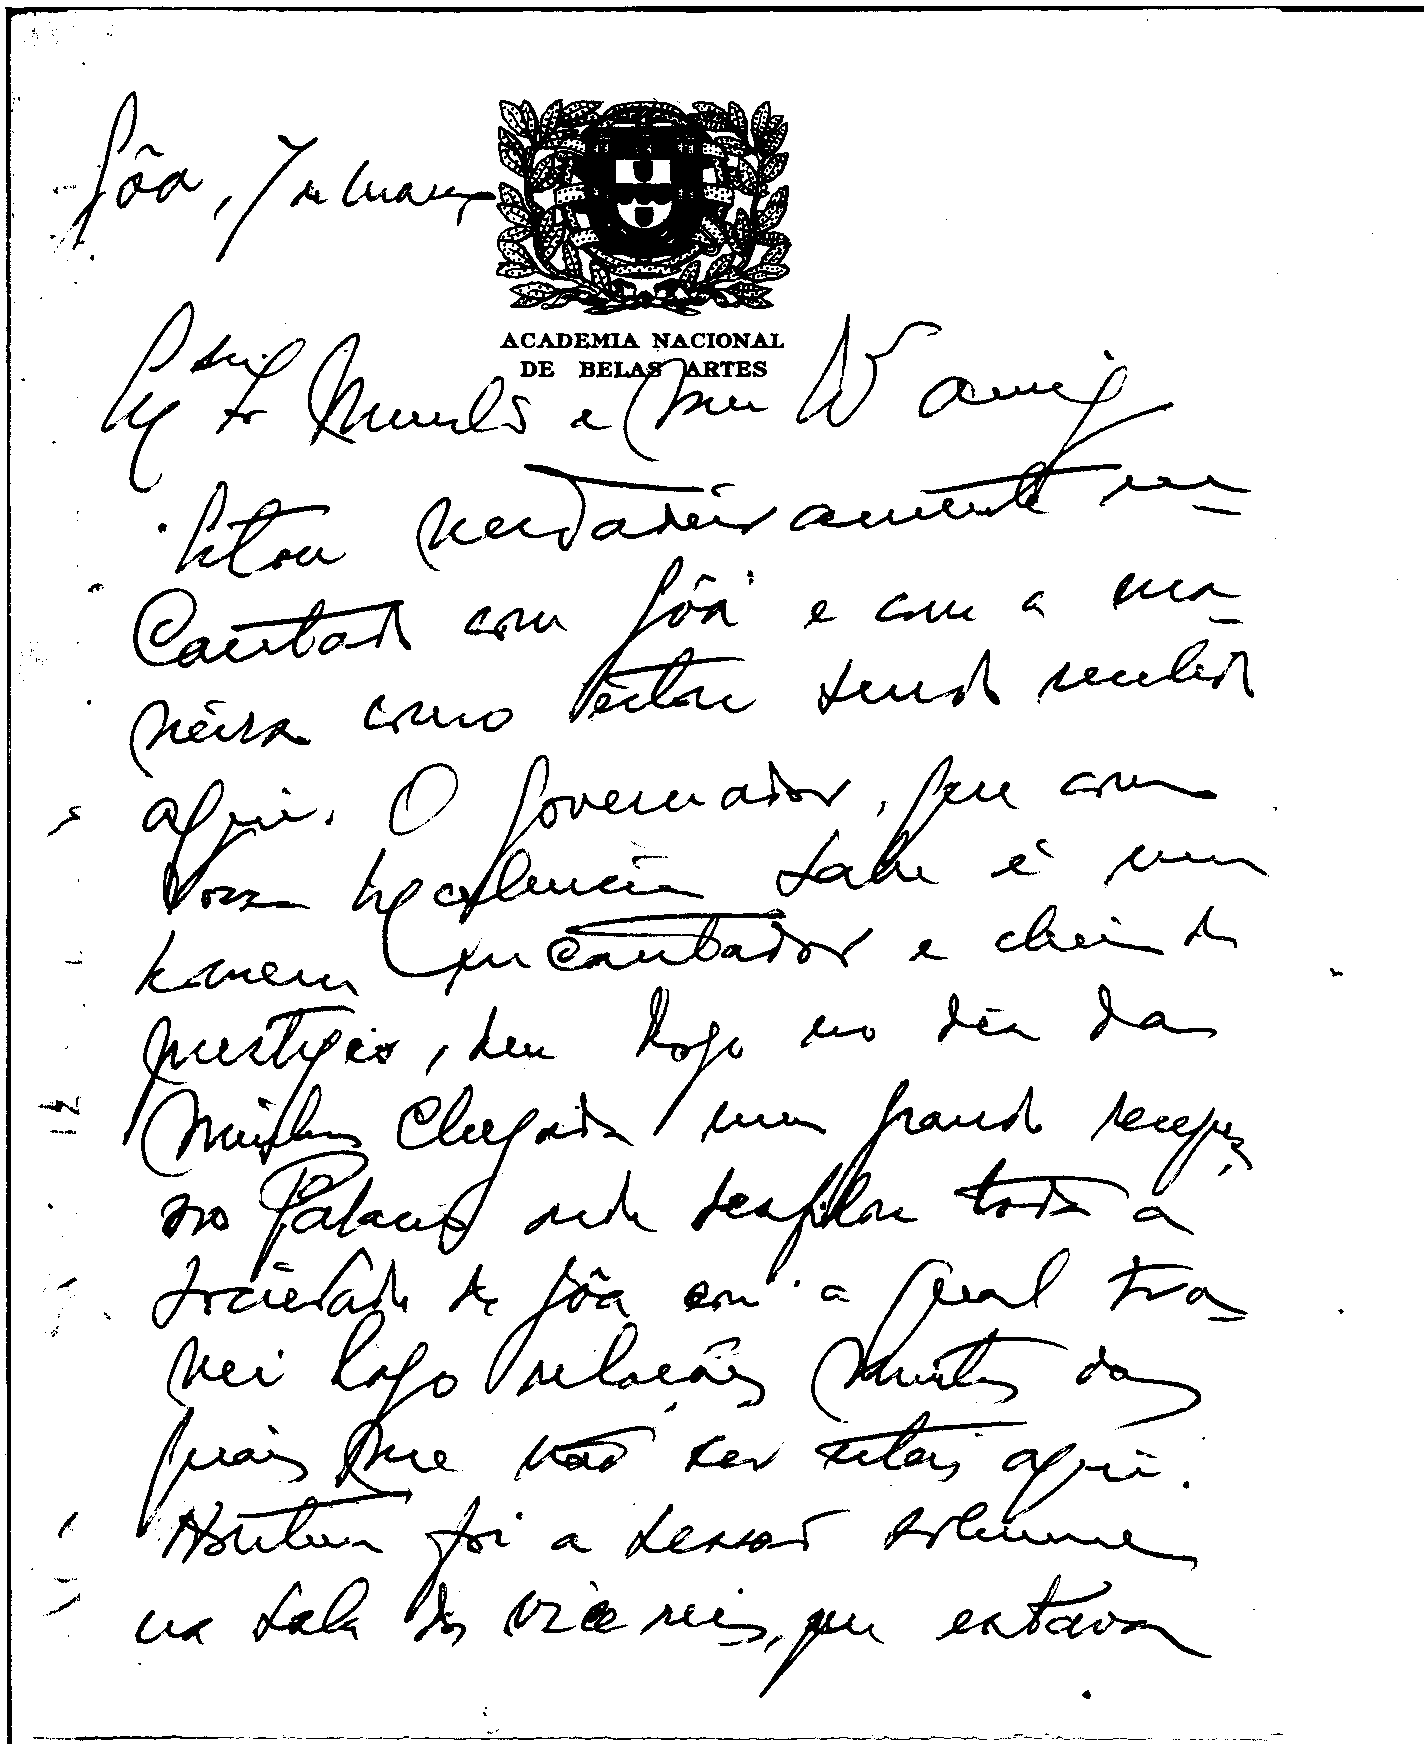 Gôa, 7 de Março
ACADEMIA NACIONAL
DE BELAS ARTES
Sr Ministro e meu Amigo
Estou verdadeiramente en-
cantado com Gôa e com a ma-
neira como estou sendo recebido
aqui. O Governador, que como
Vossa Excelencia sabe é um
homem encantador e cheio de
prestigio, deu logo no dia da
minha chegada uma grande recepção
no Palacio onde desfilou toda a
sociedade de Gôa com a qual tra-
vei logo relações muitas das
quais me vão ser uteis aqui.
Hontem foi a sessão solemne
na sala dos vice reis, que estava